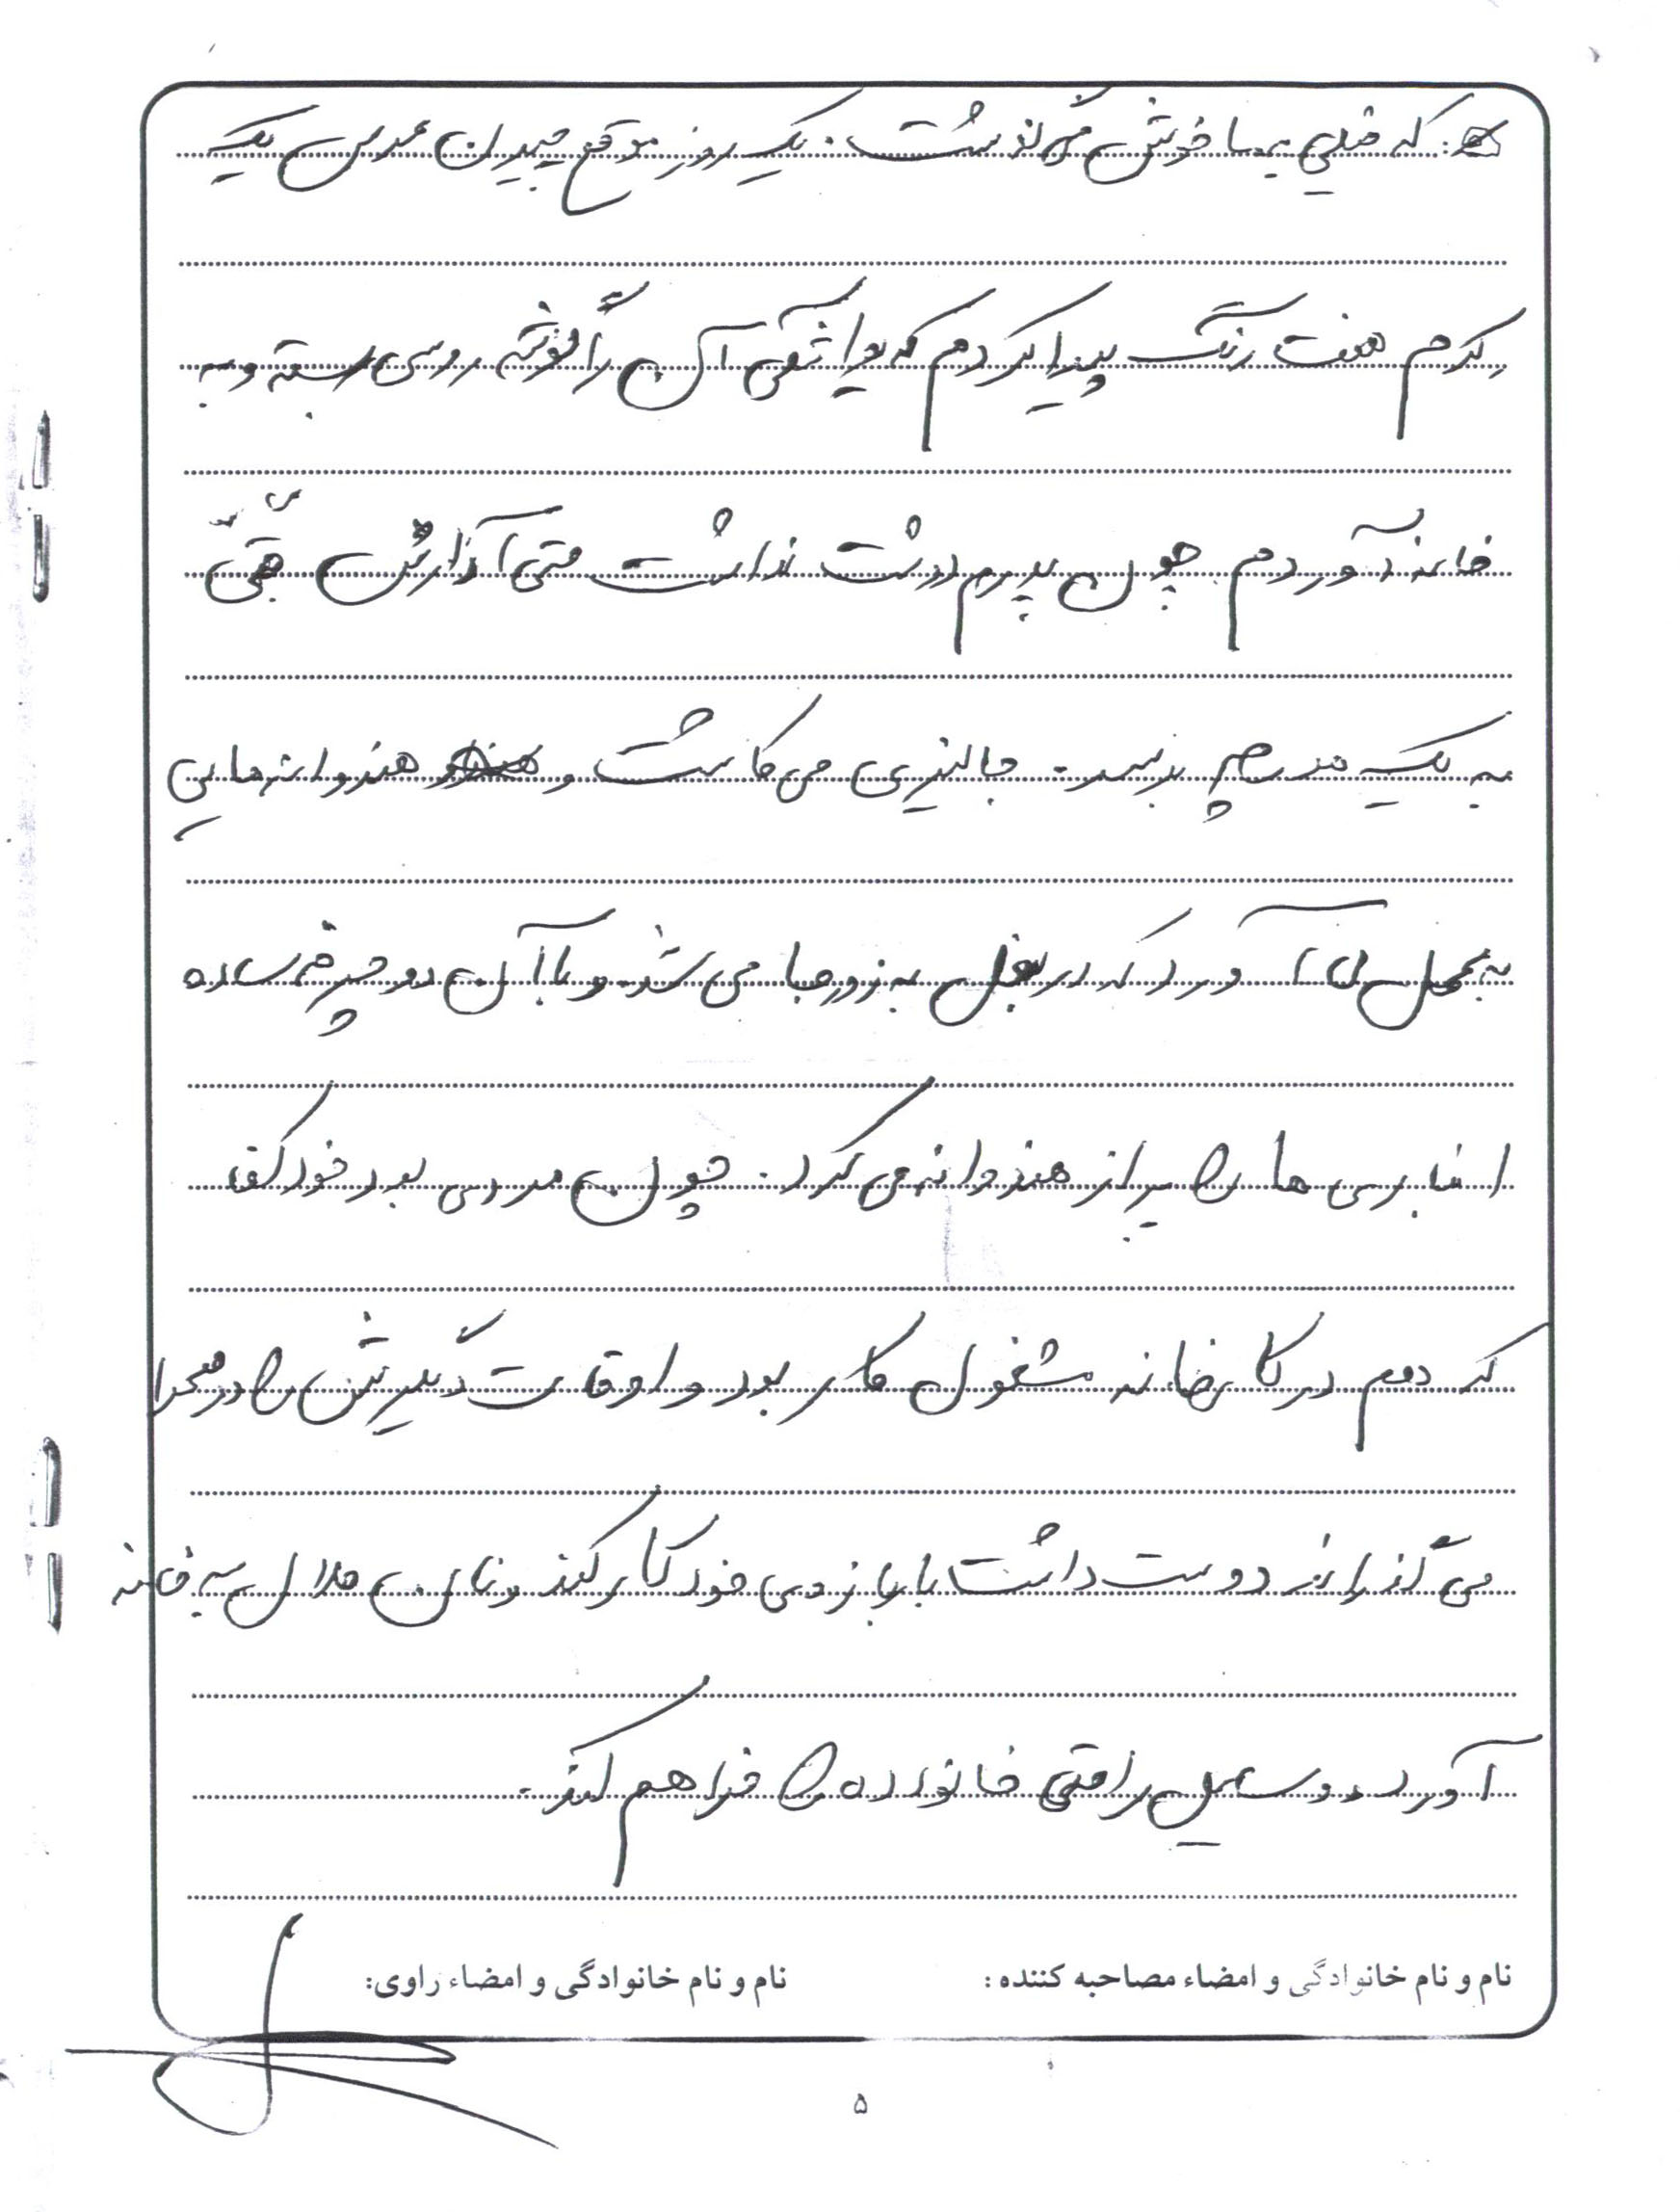 که خیلی به ما خوش می گذشت. یک روز موقع چیدن عدس یک
کرم هفت رنگ پیدا کردم که یواشکی آن را گوشه روسری بسته و به
خانه آوردم. چون پدرم دوست نداشت حتی آزارش
به یک مورچه برسد. جالیزی می کاشت و هندوانه هایی
به عمل می آورد که در بغل به زور جا می شد. و با آن دوچرخه ساده
انباری ها را پر از هندوانه می کرد. چون مردی بود خود کفا
که هم در کارخانه مشغول کار بود و اوقات دیگرش را در صحرا
می گذراند دوست داشت با بازوی خود کار کند و نان حلال به خانه
آورد و وسایل راحتی خانواده را فراهم کند.
نام و نام خانوادگی و امضاء مصاحبه کننده: نام و نام خانوادگی و امضاء راوی:
۵